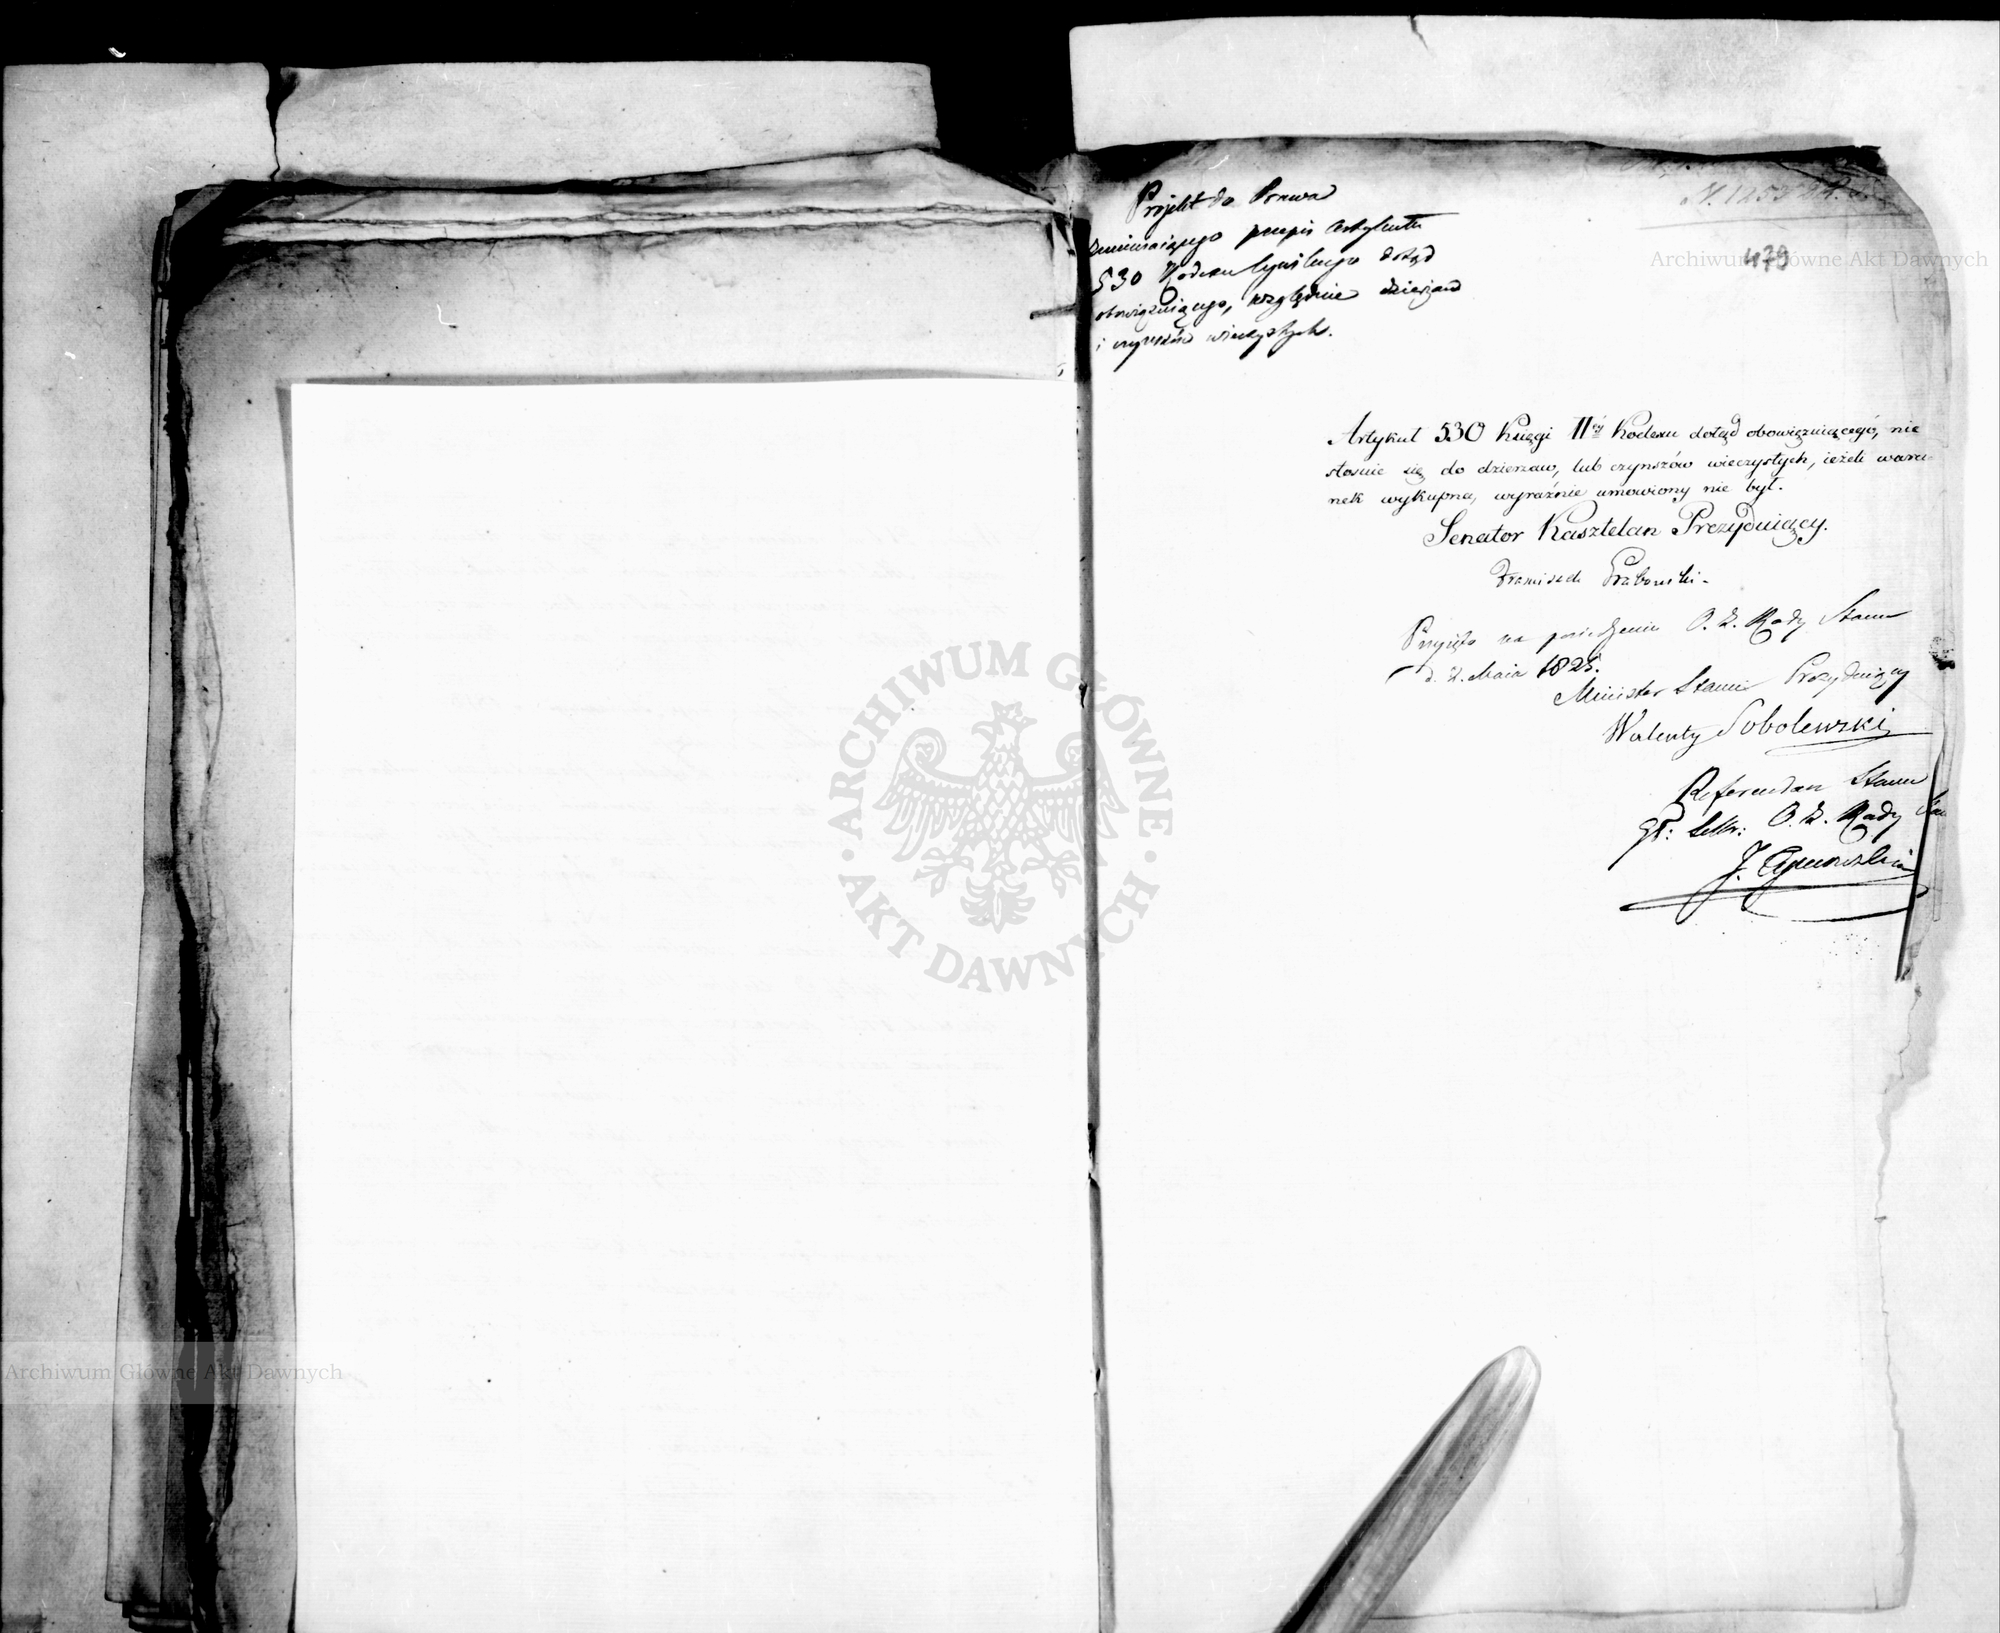 Projekt do Prawa
zmieniaiącego przepis Artykułu
530 Kodexu Cywilnego dotąd
obowiązuiącego, względnie dzierżaw
i czynszów wieczystych.
479
Archiwum Główne Akt Dawnych
Artykuł 530 Księgi IIéy Kodexu dotąd obowiązuiącego, nie
stosuie się do dzierzaw, lub czynszów wieczystych, ieżeli waru-
nek wykupna, wyraźnie umowiony nie był.
Senator Kasztelan Prezyduiący.
Franciszek Grabowski
Przyięto na posiedzeniu O. Z. Rady Stanu
d. 2. Maia 1825.
Minister Stanu Prezyduiący
Walenty Sobolewski
Referendarz Stanu
O. Z. Rady
J.
ARCHIWUM GŁÓWNE
AKT DAWNYCH
Archiwum Główne Akt Dawnych